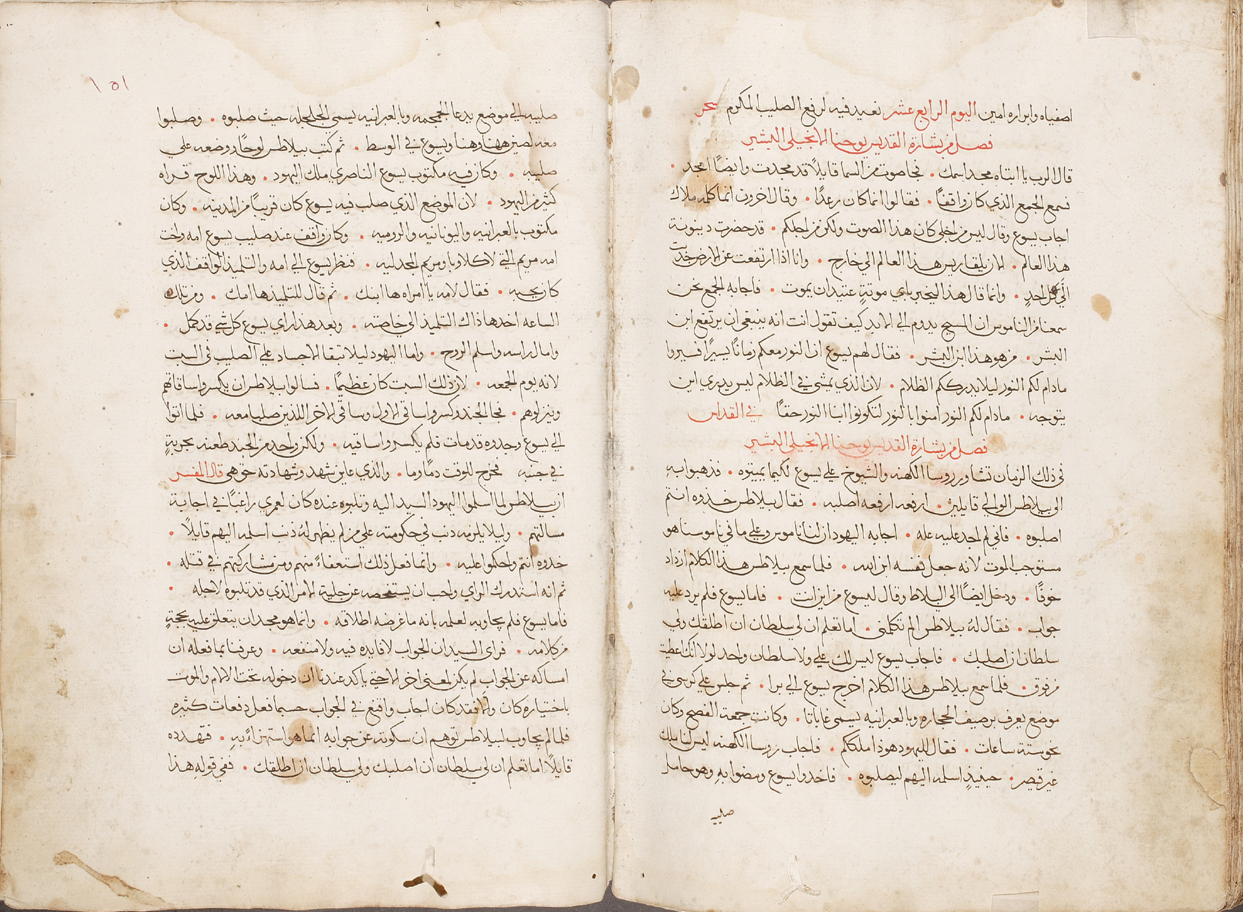 اصفياه وابراره امين اليوم الرابع عشر نعيد فيه لرفع الصليب المكرم سحر
فصل من بشارة القديس يوحنا الانجيلي البشير
قال الرب يا ابتاه مجد اسمك • فجا صوت من السما قايلاً قد مجدت وايضًا امجد •
فسمع الجمع الذي كان واقفًا • فقالوا انما كان رعدًا • وقال اخرون انما كلمه ملاك
اجاب يسوع وقال ليس من اجلي كان هذا الصوت ولكن من اجلكم • قد حضرت دينونة
هذا العالم • الان يلقا ريس هذا العالم الى خارج • وانا اذا ارتفعت عن الارض جذبت
الي كل احدٍ • وانما قال هذا ليخبر باي موتةٍ عتيد ان يموت • فاجابه الجمع نحن
سمعنا من الناموس ان المسيح يدوم الى الابد كيف تقول انت انه ينبغي ان يرتفع ابن
البشر • من هو هذا ابن البشر • فقال لهم يسوع ان النور معكم زمانًا يسيرًا فسيروا
مادام لكم النور ليلا يدرككم الظلام • لان الذي يمشي في الظلام ليس يدري اين
يتوجه • مادام لكم النور امنوا بالنور لتكونوا ابنا النور حقًا في القداس
فصل من بشارة القديس يوحنا الانجيلي البشير
في ذلك الزمان تشاور روسا الكهنه والشيوخ على يسوع لكيما يميتوه • فذهبوا به
الى بيلاطس الوالي قايلين • ارفعه ارفعه اصلبه • فقال بيلاطس خذوه انتم
اصلبوه • فاني لم اجد عليه عله • اجابه اليهود ان لنا ناموس وعلى ما في ناموسنا هو
مستوجب الموت لانه جعل نفسه ابن الله • فلما سمع بيلاطس هذا الكلام ازداد
خوفًا • ودخل ايضًا الى البلاط وقال ليسوع من اين انت • فاما يسوع فلم يرد عليه
جواب • فقال له بيلاطس الم تكلمني • اما تعلم ان لي سلطان ان اطلقك ولي
سلطان ان اصلبك • فاجاب يسوع ليس لك علي ولا سلطان واحد لولا انك اعطيت
من فوق • فلما سمع بيلاطس هذا الكلام اخرج يسوع الى برا • ثم جلس على كرسي في
موضع يعرف برصيف الحجاره وبالعبرانيه يسمى غاباتا • وكانت جمعة الفصح وكان
نحو ستة ساعات • فقال لليهود هوذا ملككم • فاجاب روسا الكهنه ليس لنا ملك
غير قيصر • حينيذٍ اسلمه اليهم ليصلبوه • فاخذوا يسوع ومضوا به وهو حامل
صليبه
١٥١
صليبه الى موضع يدعا الجمجمه وبالعبرانيه يسمى الجلجله حيث صلبوه • وصلبوا
معه لصين ههنا وهنا ويسوع في الوسط • ثم كتب بيلاطس لوحًا ووضعه على
صليبه • وكان فيه مكتوب يسوع الناصري ملك اليهود • وهذا اللوح قراه
كثير من اليهود • لان الموضع الذي صلب فيه يسوع كان قريبًا من المدينه • وكان
مكتوب بالعبرانيه واليونانيه والروميه • وكان واقف عند صليب يسوع امه واخت
امه مريم التي لاكلاوبا ومريم المجدليه • فنظر يسوع الى امه والتلميذ الواقف الذي
كان يحبه • فقال لامه يا امراه ها ابنك • ثم قال للتلميذ ها امك • ومن تلك
الساعه اخذها ذاك التلميذ الى خاصته • وبعد هذا راى يسوع كل شي قد كمل •
وامال راسه واسلم الروح • واما اليهود ليلا تبقا الاجساد على الصليب في السبت
لانه يوم الجمعه • لان ذلك السبت كان عظيمًا • فسالوا بيلاطس ان يكسروا ساقاتهم
وينزلوهم • فجا الجند وكسروا ساقي الاول وساقي الاخر اللذين صلبا معه • فلما اتوا
الى يسوع وجدوه قد مات فلم يكسروا ساقيه • ولكن واحد من الجند طعنه بحربةٍ
في جنبه فخرج للوقت دمًا وما • والذي عاين شهد وشهادته حق هي قال المفسر
ان بيلاطس لما اسلموا اليهود السيد اليه وثلبوه عنده كان لعمري راغبًا في اجابة
مسالتهم • وليلا يلزمه ذنب في حكومته على من لم يظهر له ذنب اسلمه اليهم قايلاً •
خذوه انتم واحكموا عليه • وانما فعل ذلك استعفاءً منهم ومن مشاركتهم في قتله •
ثم انه استدرك الراي واحب ان يستفحصه عن جلية الامر الذي قد ثلبوه لاجله •
فاما يسوع فلم يجاوبه لعلمه بانه ما غرضه اطلاقه • وانما هو مجد ان يتعلق عليه بحجةٍ
من كلامه • فراى السيد ان الجواب لا فايده فيه ولا منفعه • وعرفنا بما فعله ان
امساكه عن الجواب لم يكن لمعنى اخر الا حتى ياكد عندنا ان دخوله تحت الالام والموت
باختياره كان والا فقد كان اجاب واقنع في الجواب حسبما فعل دفعات كثيره
فلما لم يجاوب لبيلاطس توهم ان سكوته عن جوابه انما هو استهزاءً به • فتهدده
قايلاً اما تعلم ان لي سلطان ان اصلبك ولي سلطان ان اطلقك • ففي قوله هذا